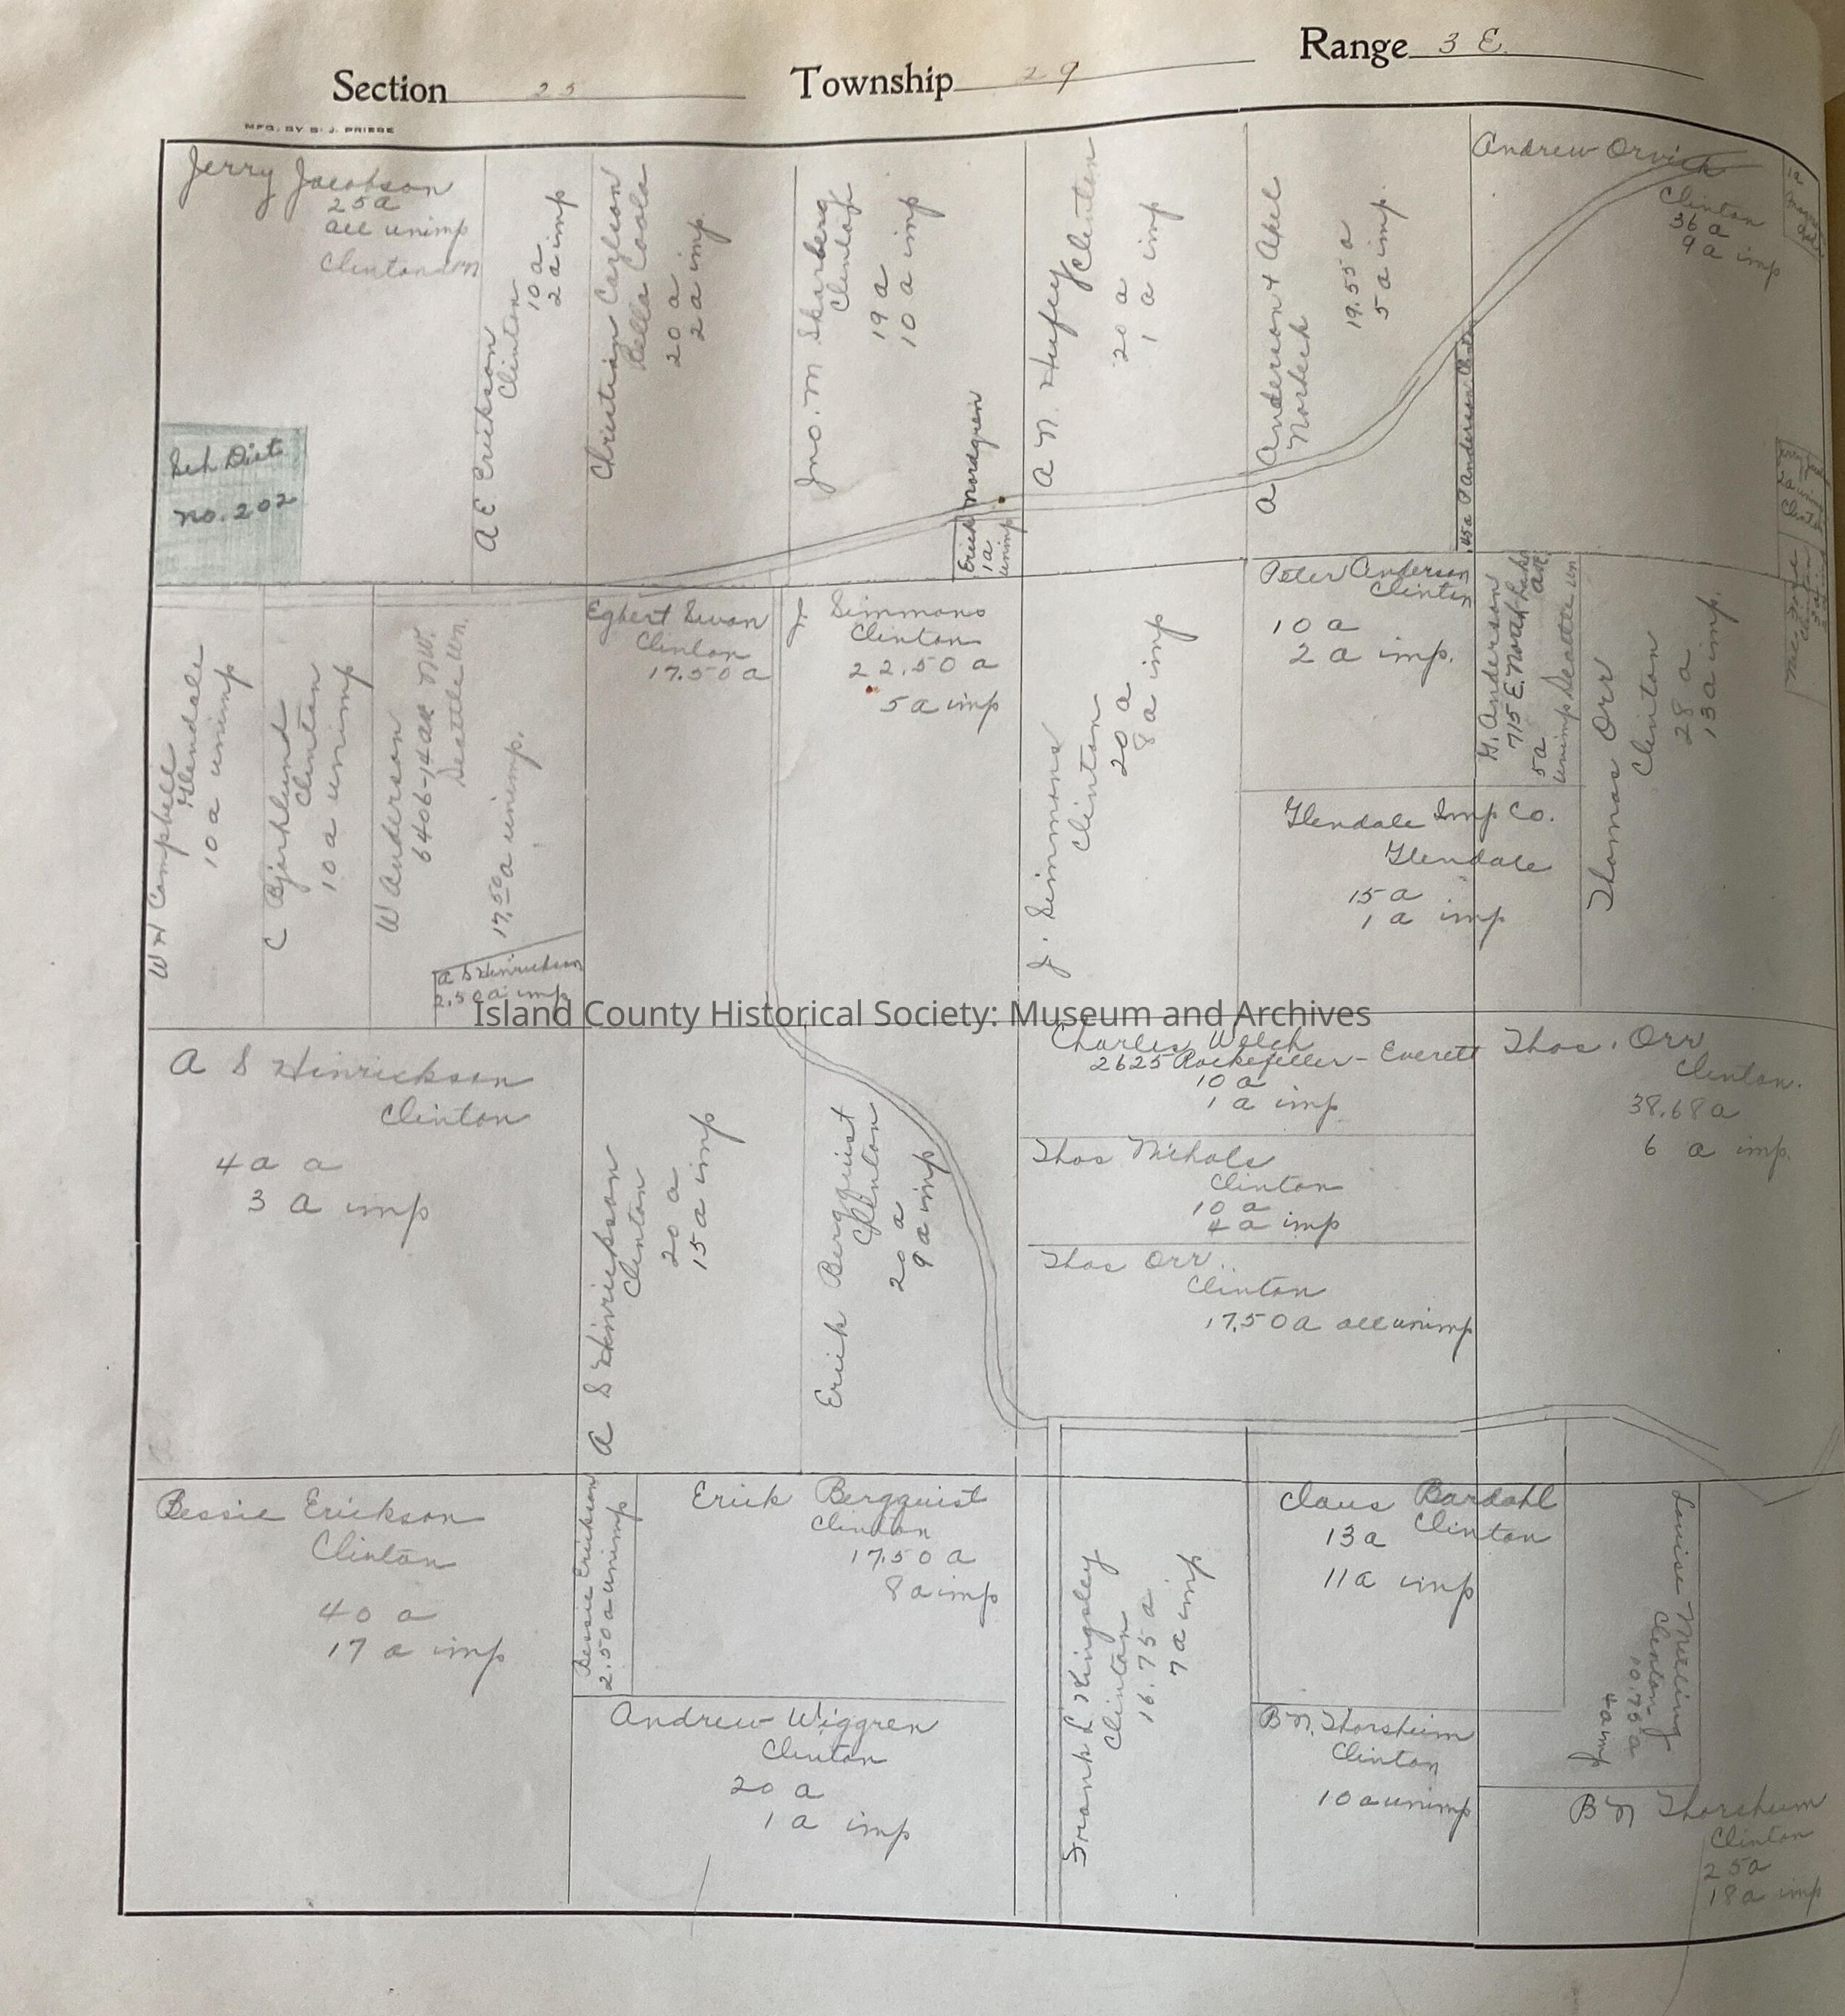 Section 25 Township 29 Range 3 E.
MFG. BY S. J. PRIEBE
Jerry Jacobson
25a
all unimp
Clinton Wn
Sch Dist
No. 202
A E Erickson
Clinton
10 a
2 a imp
Christian Carlson
Bella Coola
20 a
2 a imp
Jno. M Skarberg
Clinton
19 a
10 a imp
Erick Nordgren
1a
unimp
A N. Hufey
Clinton
20 a
1 a imp
A Anderson & Axel
Norbeck
19.55 a
5 a imp.
.45a P Anderson
Andrew Orvick
Clinton
36 a
9 a imp
1a
Jerry
2a unimp
Clinton
W H Campbell
Glendale
10 a unimp
C Bjorklund
Clinton
10 a unimp
W Anderson
6406-14 ave NW.
Seattle Wn.
17.50 a unimp.
A S Hinrickson
2.50 a imp
Egbert Swan
Clinton
17.50 a
J Simmons
Clinton
22.50 a
5 a imp
J. Simmons
Clinton
20 a
8 a imp
Peter Anderson
Clinton
10 a
2 a imp.
G. Anderson
715 E.
5a
unimp Seattle Wn
Glendale Imp Co.
Glendale
15 a
1 a imp
Thomas Orr
Clinton
28 a
13 a imp.
Island County Historical Society: Museum and Archives
A S Hinrickson
Clinton
40 a
3 a imp
A S Hinrickson
Clinton
20 a
15 a imp
Erick Bergquist
Clinton
20 a
9 a imp
Charles Welch
2625 Rockefeller - Everett
10 a
1 a imp
Thos Nichols
Clinton
10 a
4 a imp
Thos Orr
Clinton
17.50 a all unimp
Thos. Orr
Clinton.
38.68 a
6 a imp.
Bessie Erickson
Clinton
40 a
17 a imp
Bessie Erickson
2.50 a unimp
Erick Bergquist
Clinton
17.50 a
8 a imp
Andrew Wiggren
Clinton
20 a
1 a imp
Frank L Kingsley
Clinton
16.75 a
7 a imp
Claus Bardahl
Clinton
13 a
11 a imp
B N. Thorsheim
Clinton
10 a unimp
Louise Melling
Clinton
10.76 a
4 a imp
B N Thorsheim
Clinton
25a
18a imp